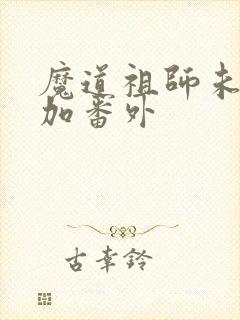 魔道祖師未
加番外
古幸鈴